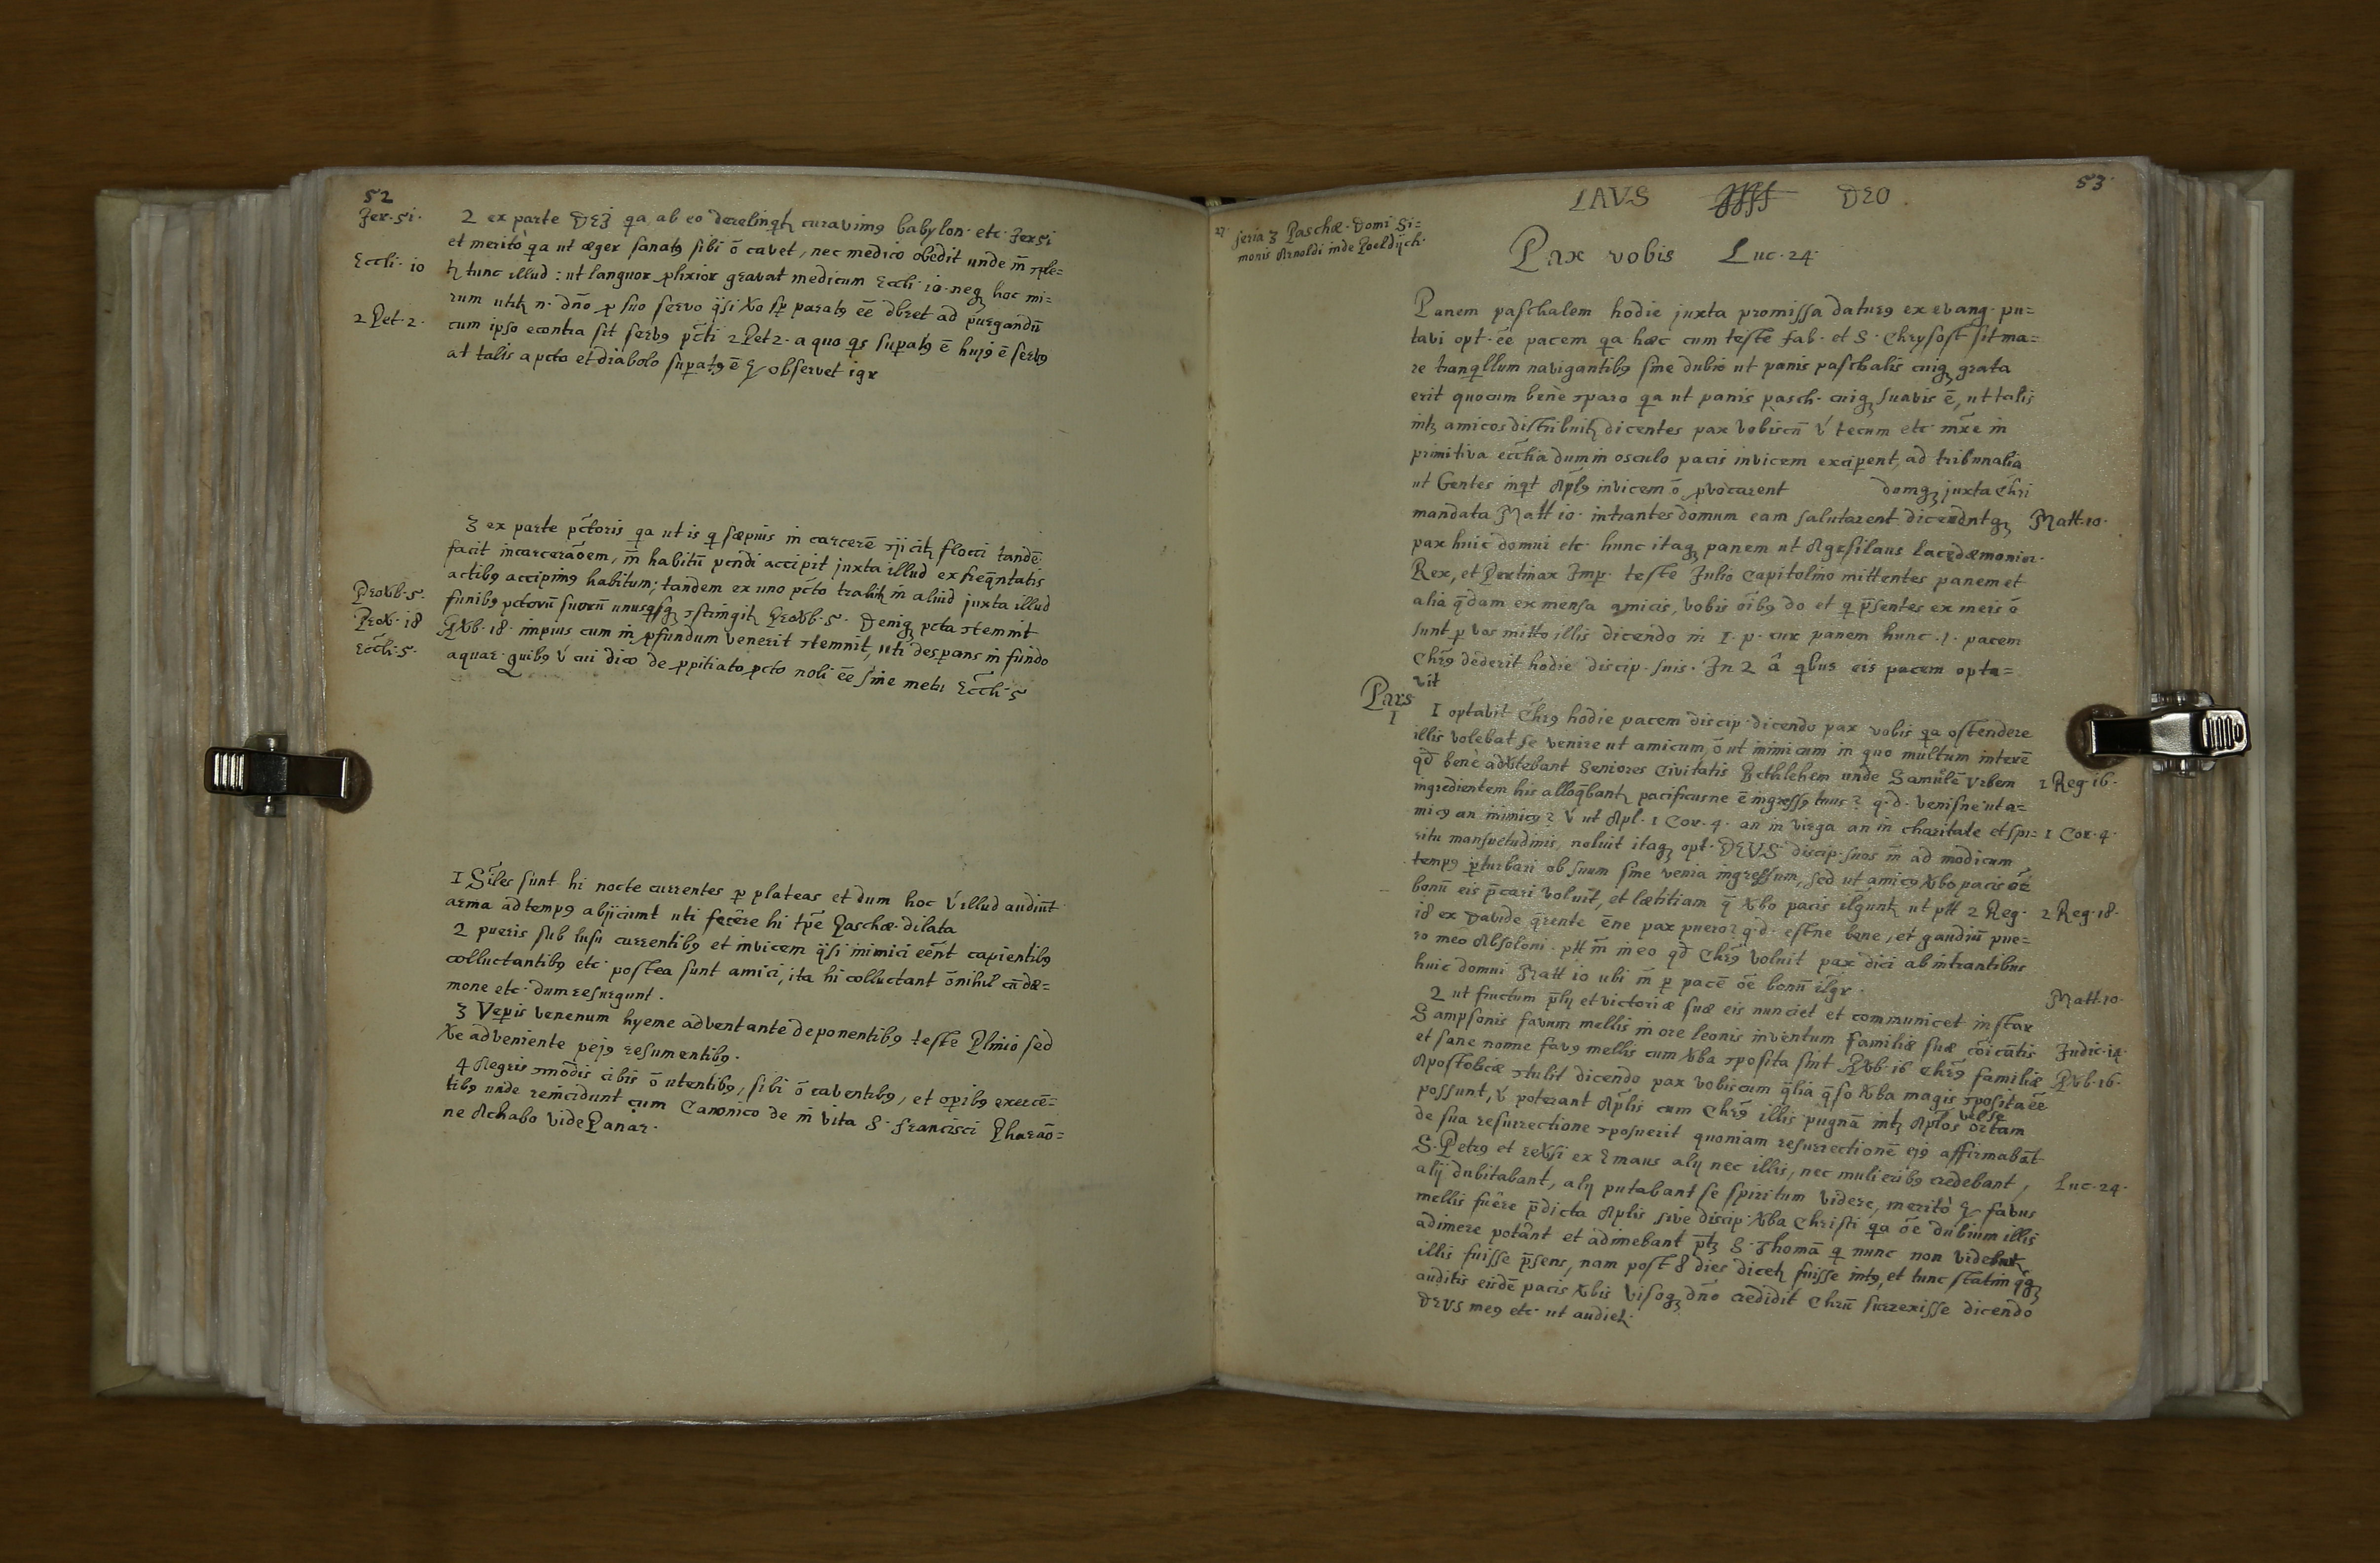 52
Jer. 51.
2 ex parte DEI qa ab eo derelinqtʒ curavimꝯ babylon. etc. Jer 51
et meritò qa ut æger sanatꝯ sibi õ cavet, nec medico obedit unde m̄ ꝯple=
Eccli. 10
tʒ tunc illud: ut languor plixior gravat medicum Eccli. 10. neqʒ hoc mi=
rum n. dño p suo servo qsi Xo sp paratꝯ eē dbret ad purgandū
2 Pet. 2.
cum ipso econtra sit servꝯ pcti 2 Pet 2. a quo qs supatꝯ ē hujꝯ ē servꝯ
at talis a pcto et diabolo supatꝯ ē observet igr
3 ex parte pctoris qa ut is q sæpius in carcerē ꝯjicitʒ flocci tandē
facit incarceraõem, m̄ habitū pcndi accipit juxta illud ex freq̄ntatis
actibꝯ accipimꝯ habitum; tandem ex uno pcto trahitʒ in aliud juxta illud
Proverb. 5.
funibꝯ pctorū suorū unusqsqʒ ꝯstringitʒ Proverb. 5. Deniqʒ pcta ꝯtemnit
Prov. 18
Prvb. 18. impius cum in pfundum venerit ꝯtemnit, uti despans in fundo
Eccli. 5.
aquæ. quibꝯ v́ cui dico de ppitiato pcto noli eē sine metu Eccli. 5
1 Siles sunt hi nocte currentes p plateas et dum hoc v́ illud audiūt
arma ad tempꝯ abjiciunt uti fecêre hi tpē Paschæ. dilata
2 pueris sub lusu currentibꝯ et invicem qsi inimici eēnt capientibꝯ
colluctantibꝯ etc. postea sunt amici, ita hi colluctant õnihil cū dæ=
mone etc. dum resurgunt.
3 Vepis venenum hyeme adventante deponentibꝯ teste Plinio sed
Ve adveniente pejꝯ resumentibꝯ.
4 Aegris ꝯmodis cibis õ utentibꝯ, sibi õ caventibꝯ, et opibꝯ exercē=
tibꝯ unde reincidunt cum Canonico de in vita S. Francisci Pharaō=
ne Achabo vide Panar.
53.
LAVS DEO.
27. feria 3 Paschæ. Domi Si=
monis Arnoldi inde Poeldijch.
Pax vobis Luc. 24.
Panem paschalem hodie juxta promissa daturꝯ ex evang. pu=
tavi opt. eē pacem qa hæc cum teste Fab. et S. Chrysost sit ma=
re tranqllum navigantibꝯ sine dubio ut panis paschalis cuiqʒ grata
erit quocum benè ꝯparo qa ut panis pasch. cuiqʒ suavis ē, ut talis
intʒ amicos distribuitʒ dicentes pax vobiscū v́ tecum etc. mx̄e in
primitiva ecclia dum in osculo pacis invicem excipent, ad tribunalia
ut Gentes inqt Aplꝯ invicem õ pvocarent domqʒ juxta Chri
mandata Matt 10. intrantes domum eam salutarent dicendntqʒ
Matt. 10.
pax huic domui etc. hunc itaqʒ panem ut Agesilaus Lacedæmonior.
Rex, et Pertinax Imp. teste Julio Capitolino mittentes panem et
alia q̄dam ex mensa amicis, vobis oībꝯ do et q p̄sentes ex meis õ
sunt p vos mitto illis dicendo in 1. p. cur panem hunc .1. pacem
Chrꝯ dederit hodie discip. suis. In 2 â qbus eis pacem opta=
vit
Pars
1
1 optavit Chrꝯ hodie pacem discip. dicendo pax vobis qa ostendere
illis volebat se venire ut amicum, õ ut inimicum in quo multum interē
qd benè advtebant Seniores Civitatis Bethlehem unde Samuelē Vrbem
1 Reg. 16.
ingredientem his alloqbantʒ pacificusne ē ingressꝯ tuus? q.d. venisne ut a=
micꝯ an inimicꝯ? v́ ut Apl. 1 Cor. 4. an in virga an in charitate et spi=
1 Cor. 4.
ritu mansuetudinis, noluit itaqʒ opt. DEVS discip. suos m̄ ad modicum
tempꝯ pturbari ob suum sine venia ingressum, sed ut amicꝯ Xbo pacis oē
bonū eis p̄cari voluit, et lætitiam q̄ Xbo pacis ilgunt ut ptt 2 Reg.
2 Reg. 18.
18 ex Davide q̄rente ēne pax puero? q.d. estne bene, et gaudiū pue=
ro meo Absoloni. ptt m̄ in eo qd Chrꝯ voluit pax dici ab intrantibus
huic domui Matt 10 ubi m̄ p pacē oē bonū ilgr.
Matt. 10.
2 ut fructum plij et victoriæ suæ eis nunciet et communicet instar
Sampsonis favum mellis in ore leonis inventum familiæ suæ cōicātis
Judic. 14.
et sane nonne favꝯ mellis cum Xba ꝯposita sint PXb. 16 Chrꝯ familiæ
PXb. 16.
Apostolicæ ꝯtulit dicendo pax vobiscum qlia q̄so Xba magis ꝯposita eē
possunt, v́ poterant Aplis cum Chrꝯ illis pugnā intʒ Aplos vel se ortam
de sua resurrectione ꝯposuerit quoniam resurrectionē ejꝯ affirmabāt
S. Petrꝯ et reXsi ex Emaus alij nec illis, nec mulieribꝯ credebant,
Luc. 24.
alij dubitabant, alij putabant se spiritum videre, meritò favus
mellis fuêre p̄dicta Aplis sive discip. Xba Christi qa oē dubium illis
adimere potant et adimebant p̄tʒ S. Thomā q nunc non videbatʒ
illis fuisse p̄sens, nam post 8 dies dicetʒ fuisse intꝯ, et tunc statim qqʒ
auditis eisdē pacis Xbis visoqʒ dño credidit Chrū surrexisse dicendo
DEVS meꝯ etc. ut audietʒ.